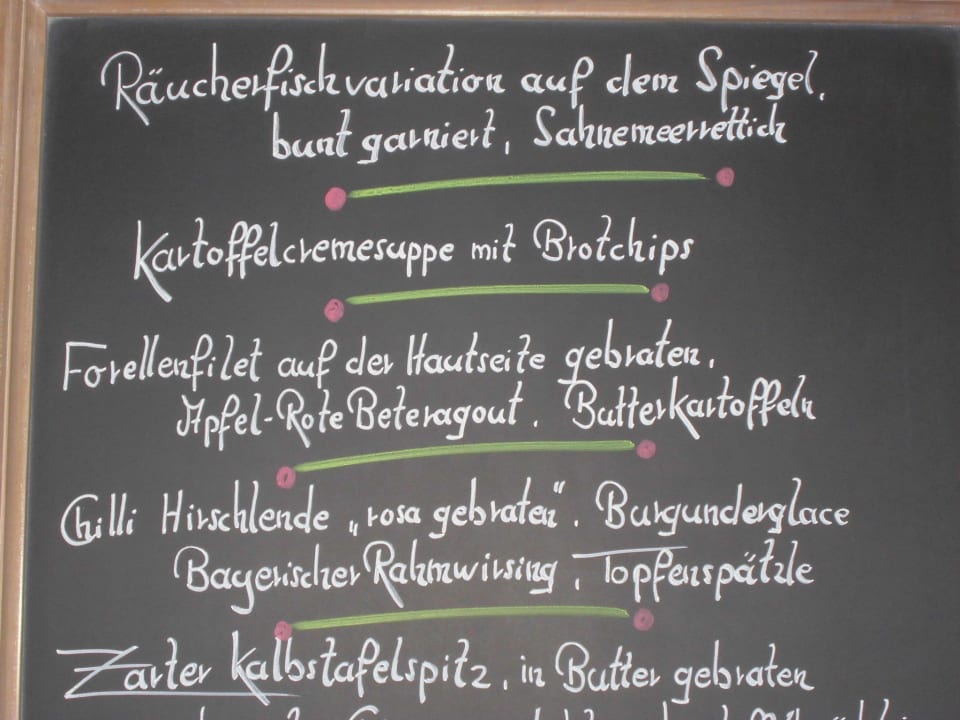 Räucherfischvariation auf dem Spiegel,
bunt garniert, Sahnemeerrettich
Kartoffelcremesuppe mit Brotchips
Forellenfilet auf der Hautseite gebraten,
Apfel-Rote Beteragout, Butterkartoffeln
Chilli Hirschlende „rosa gebraten“, Burgunderglace
Bayerischer Rahmwirsing, Topfenspätzle
Zarter Kalbstafelspitz, in Butter gebraten